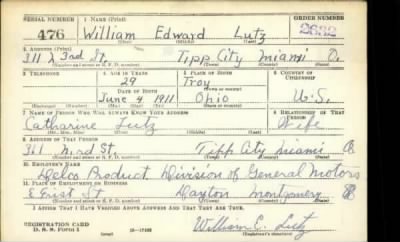 SERIAL NUMBER 1. NAME (Print) ORDER NUMBER
476 William Edward Lutz 2682
(First) (Middle) (Last)
2. ADDRESS (Print)
311 N 3rd St. Tipp City Miami O.
(Number and street or R. F. D. number) (Town) (County) (State)
3. TELEPHONE 4. AGE IN YEARS 5. PLACE OF BIRTH 6. COUNTRY OF CITIZENSHIP
29 Troy
DATE OF BIRTH (Town or county)
June 4 1911 Ohio U.S.
(Exchange) (Number) (Mo.) (Day) (Yr.) (State or country)
7. NAME OF PERSON WHO WILL ALWAYS KNOW YOUR ADDRESS 8. RELATIONSHIP OF THAT PERSON
Catharine Lutz Wife
(Mr., Mrs., Miss) (First) (Middle) (Last)
9. ADDRESS OF THAT PERSON
St. Tipp City Miami O
(Number and street or R. F. D. number) (Town) (County) (State)
10. EMPLOYER'S NAME
Delco Product Division of General Motors
11. PLACE OF EMPLOYMENT OR BUSINESS
E First St Dayton Montgomery O
(Number and street or R. F. D. number) (Town) (County) (State)
I AFFIRM THAT I HAVE VERIFIED ABOVE ANSWERS AND THAT THEY ARE TRUE.
REGISTRATION CARD
D. S. S. FORM 1 William E. Lutz
(Registrant's signature)